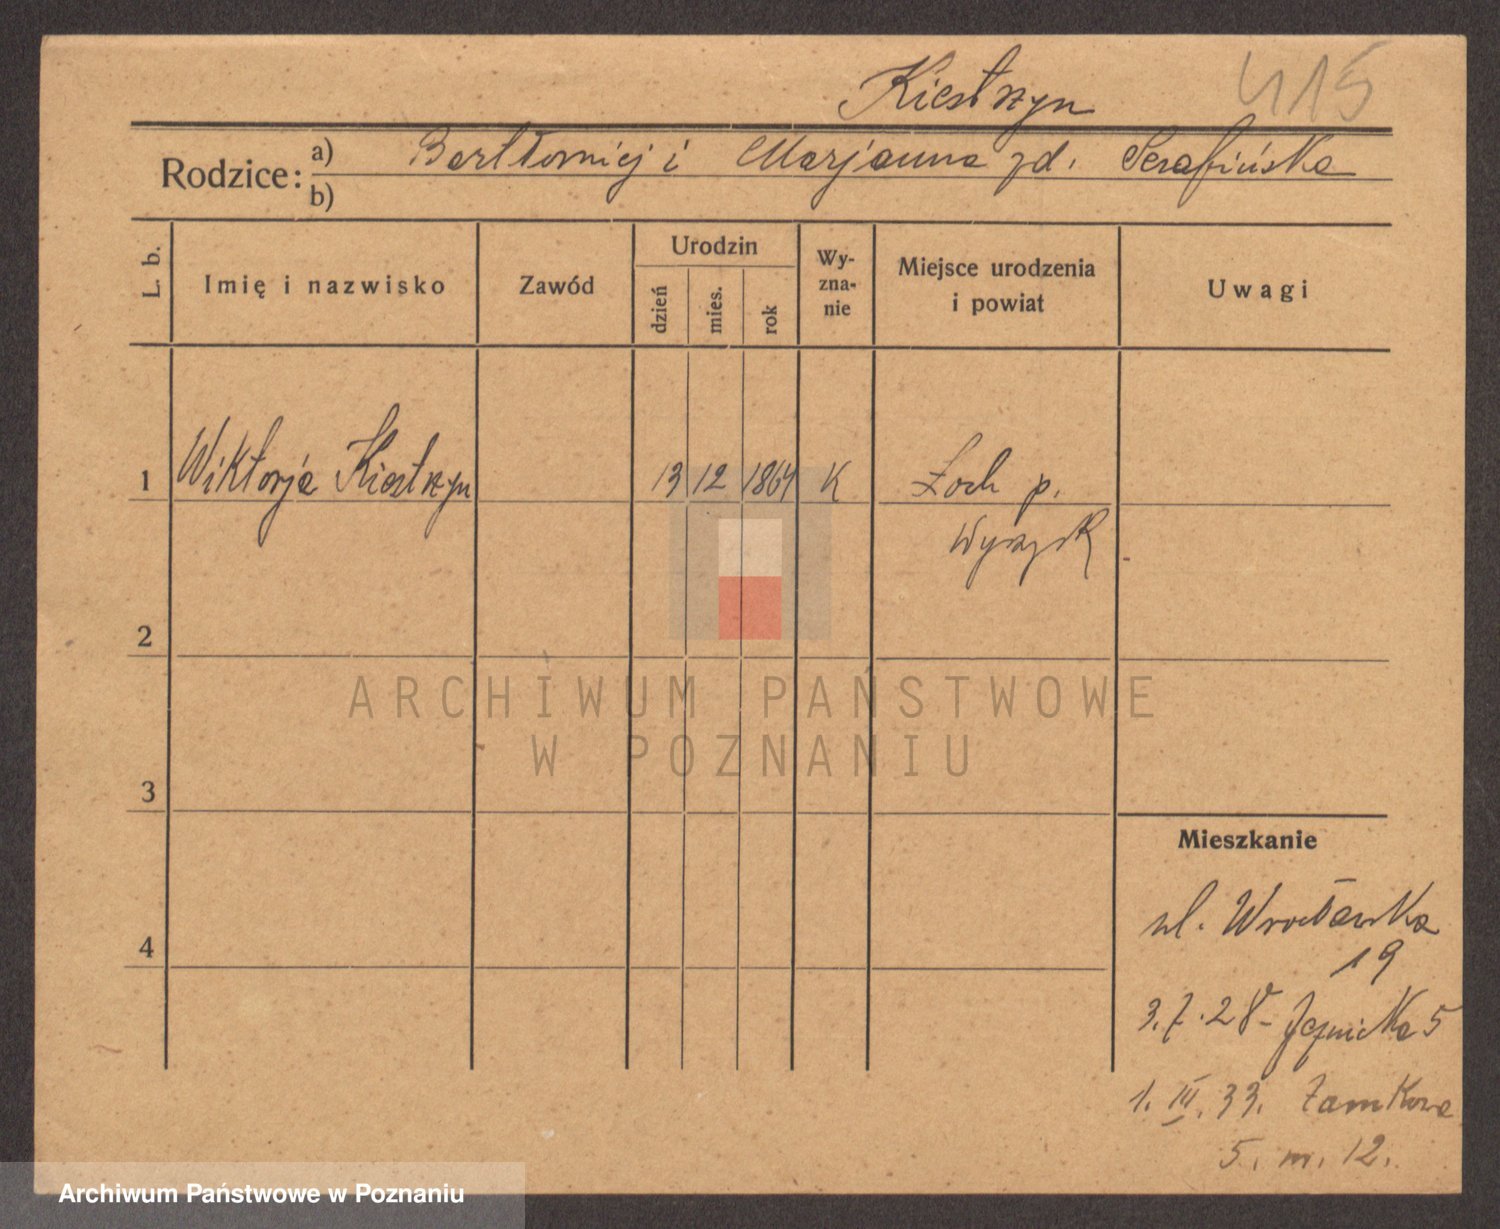 Kiestrzyn 415
Rodzice: a) Bartłomiej i Marjanna zd. Serafińska
b)
L. b. Imię i nazwisko Zawód Urodzin dzień mies. rok Wy-zna-nie Miejsce urodzenia i powiat Uwagi
1 Wiktorja Kiestrzyn 13 12 1864 K Żoch p.
Wyrzysk
2
ARCHIWUM PAŃSTWOWE
W POZNANIU
3
Mieszkanie
4
ul. Wrocławska
19
3.7.28 - Jezuicka 5
1. III. 33. Zamkowa
5. m. 12.
Archiwum Państwowe w Poznaniu